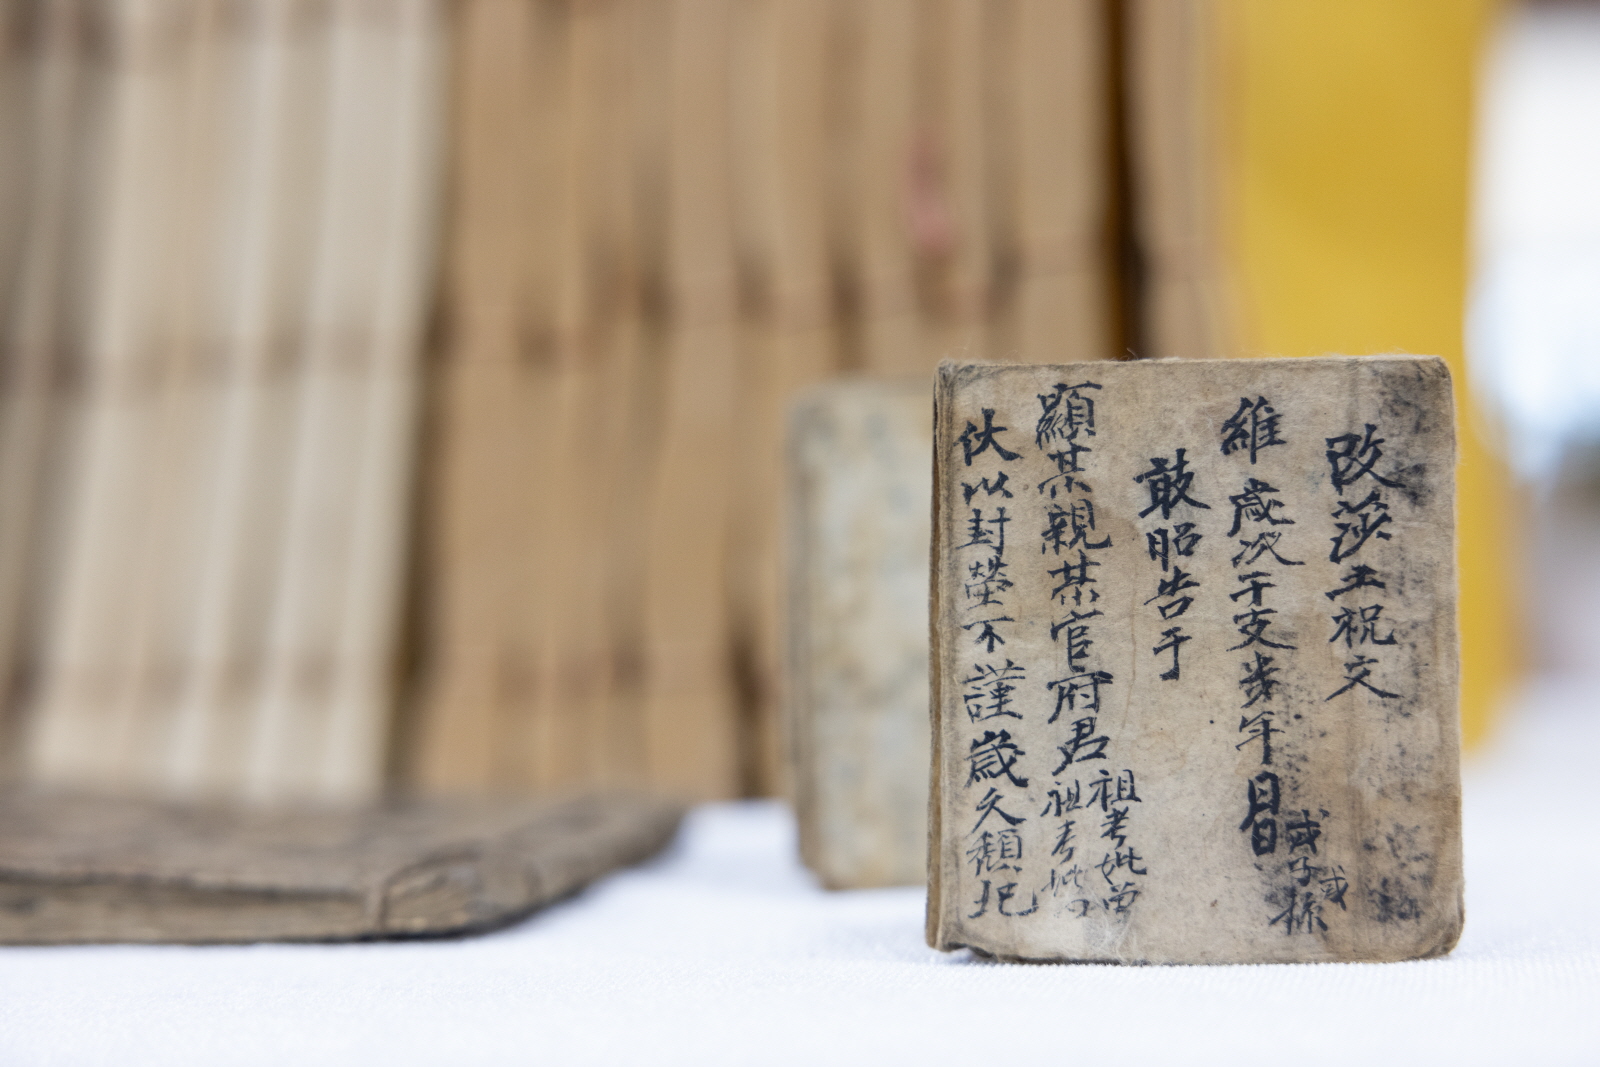 改莎土祝文
維 歲次干支某年月日 或子或孫
敢昭告于
顯某親某官府君 祖考妣曾
祖考妣
伏以封塋不謹歲久頹圮